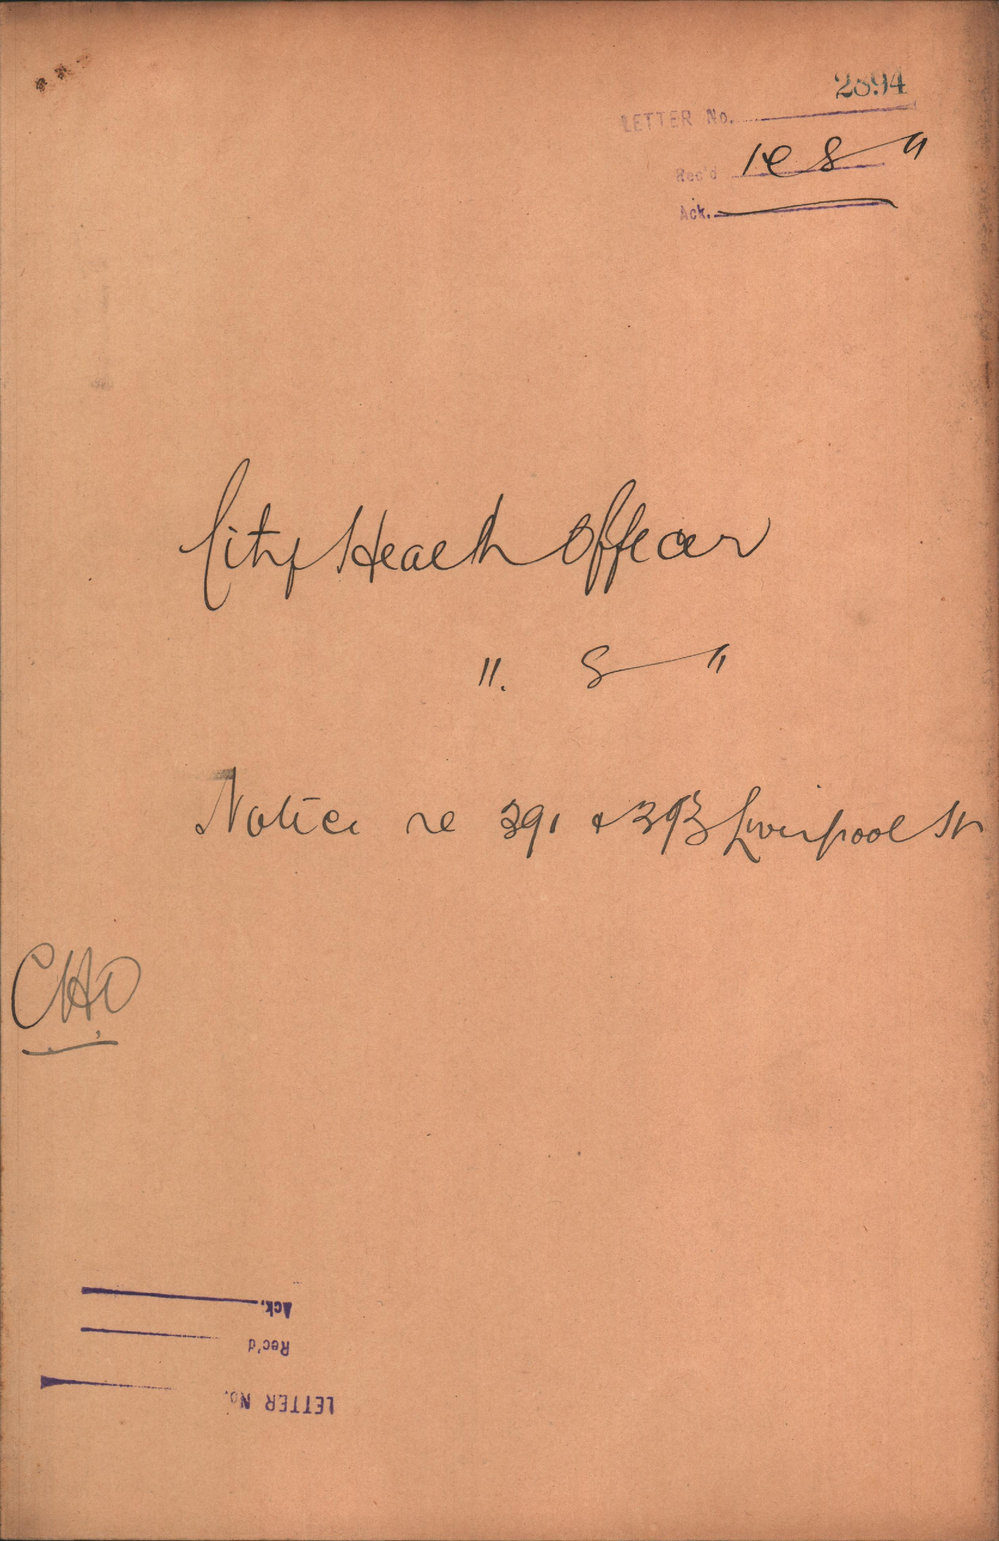 2894
LETTER No.
Rec'd 12 8 "
Ack.
City Health Officer
11. 8 "
Notice re 391 & 393 Liverpool St
CHO
Ack.
Rec'd
LETTER No.